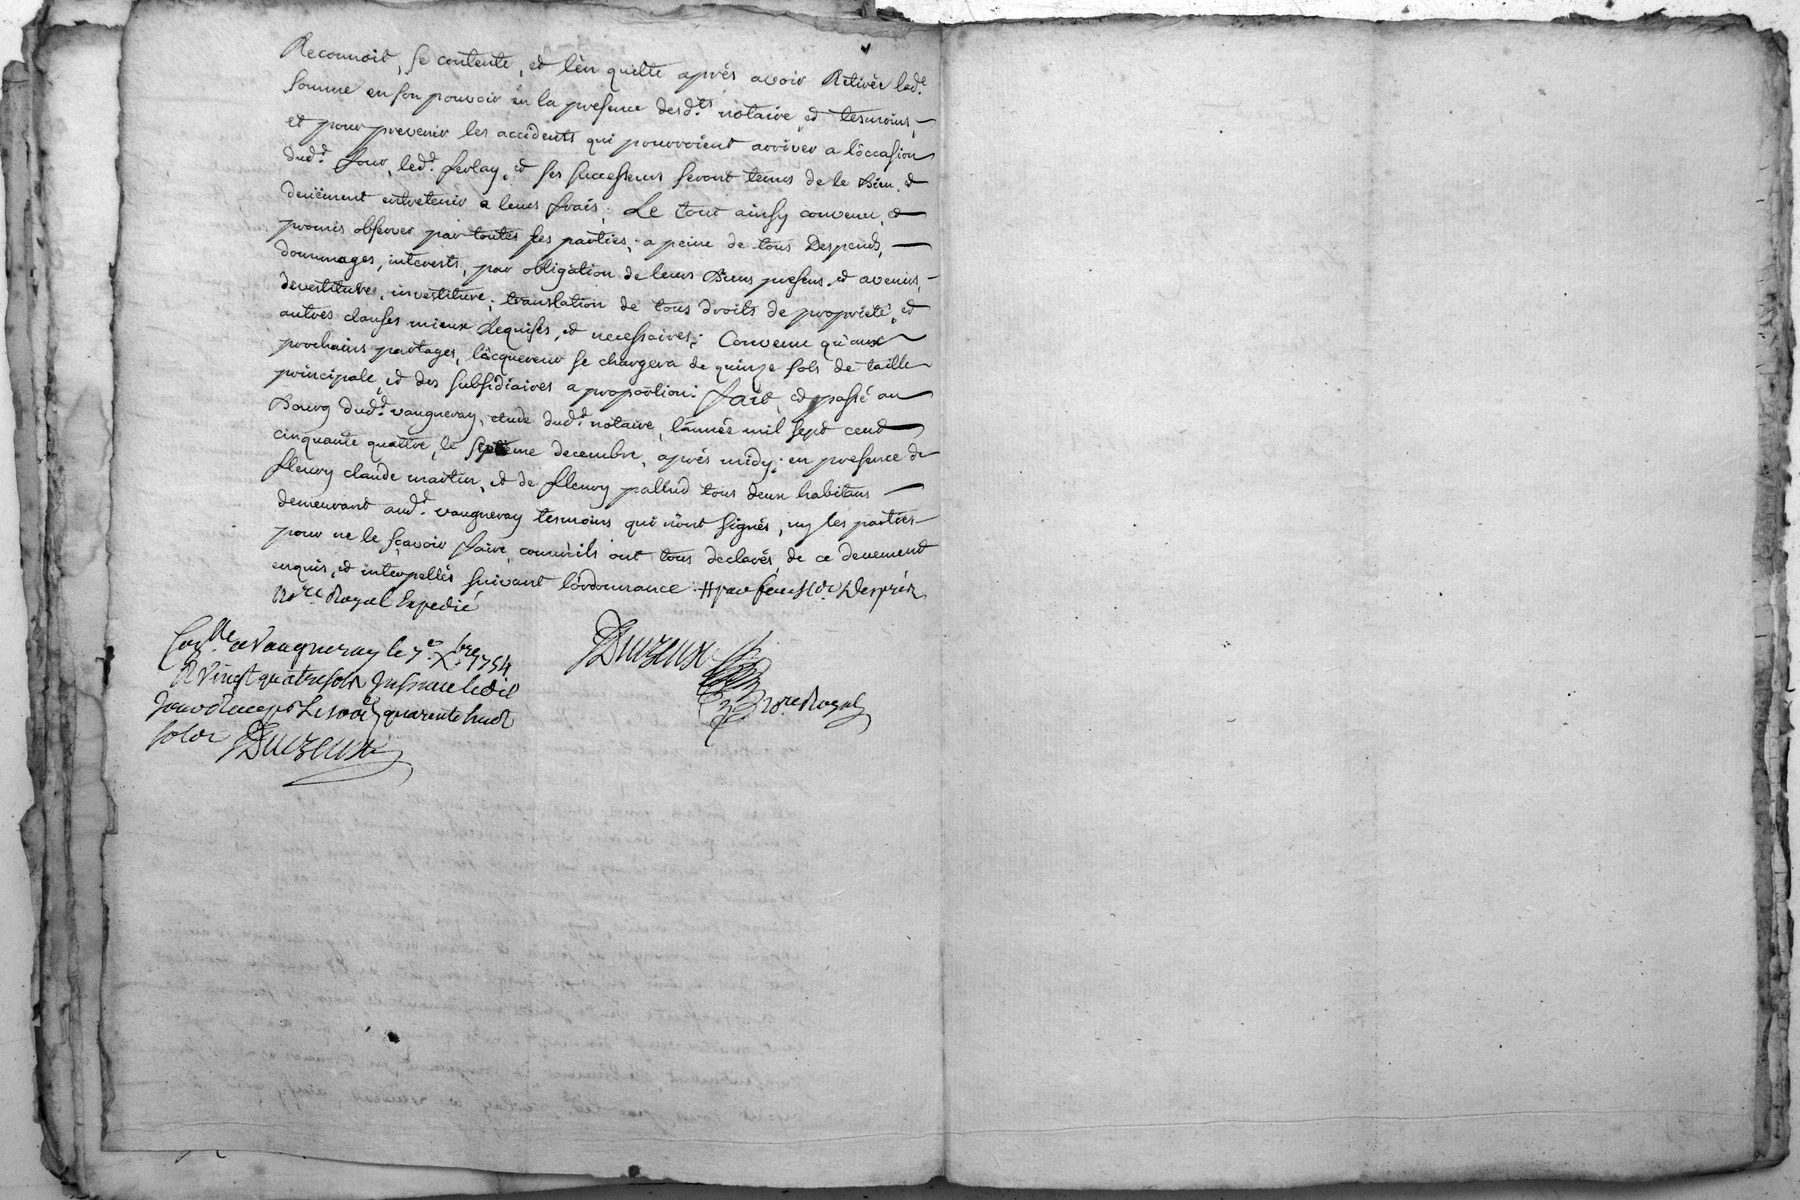 Reconnoit, se contente, et l'en quitte aprés avoir Retirér lad.e
somme en son pouvoir en la presence desd.ts notaire, et tesmoins,
et pour prevenir les accidents qui pourroient arriver a l'occasion
dud.t four, led.t ferlay, et ses successeurs seront tenus de le bien, et
deüement entretenir a leurs frais; Le tout ainsy convenu, et
promis observer par toutes les parties, a peine de tous Despends,
dommages, interests, par obligation de leurs Biens presens, et avenirs,
devestiture, investiture; translation de tous droits de proprieté, et
autres clauses mieux Requises, et necessaires; Convenu qu'aux
prochains partages, l'acquereur se chargera de quinze sols de taille
principale, et des subsidiaires a proportion: fait, et passé au
Bourg dud.t vaugneray, etude dud.t notaire, l'année mil sept cent
cinquante quattre, le septieme decembre, aprés midy; en presence de
fleury claude martin, et de fleury pallud tous deux habitans
demeurant aud.t vaugneray tesmoins qui n'ont signés, ny les parties
pour ne le sçavoir faire, comm'ils ont tous declarés, de ce deuement
enquis, et interpellés suivant l'ordonnance
no.re Royal Expedié
Con.lle a Vaugneray le 7.e X.bre 1754
R Vingt quatre sols
quarente huit
sols
no.re Royal